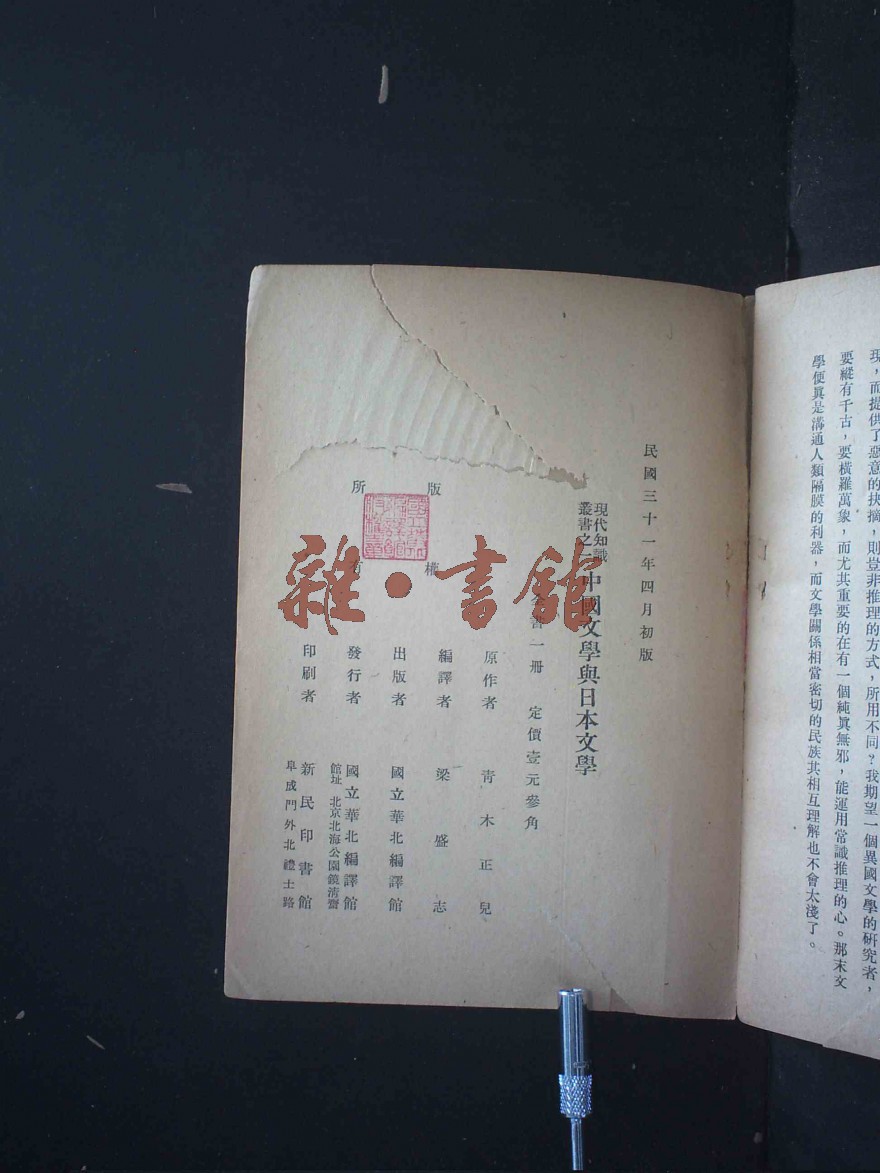 現，而提供了惡意的抉摘，則豈非推理的方式，所用不同？我期望一個異國文學的研究者，
要縱有千古，要橫羅萬象，而尤其重要的在有一個純眞無邪，能運用常識推理的心。那末文
學便眞是溝通人類隔膜的利器，而文學關係相當密切的民族其相互理解也不會太淺了。
民國三十一年四月初版
現代知識
叢書之一
中國文學與日本文學
全書一冊 定價壹元參角
版權
所有
原作者 青木正兒
編譯者 梁盛志
出版者 國立華北編譯館
發行者 國立華北編譯館
館址 北京北海公園鏡淸齋
印刷者 新民印書館
阜成門外北禮士路
雜·書館